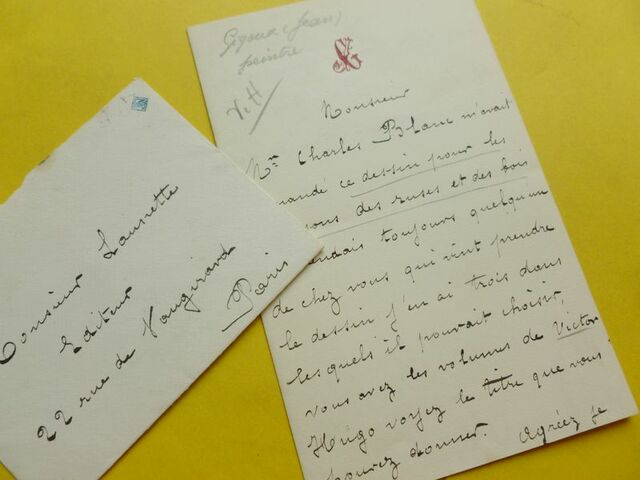 Monsieur Launette
Editeur
22 rue de Vaugirard
Paris
Gigoux (Jean)
peintre
V.H
Monsieur
Mr Charles Blanc m'avait
mandé ce dessin pour les
des ruses et des bois
tendais toujours quelqu'un
de chez vous qui vint prendre
le dessin j'en ai trois dans
lesquels il pouvait choisir,
vous avez les volumes de Victor
Hugo voyez le titre que vous
pouvez donner. Agréez je